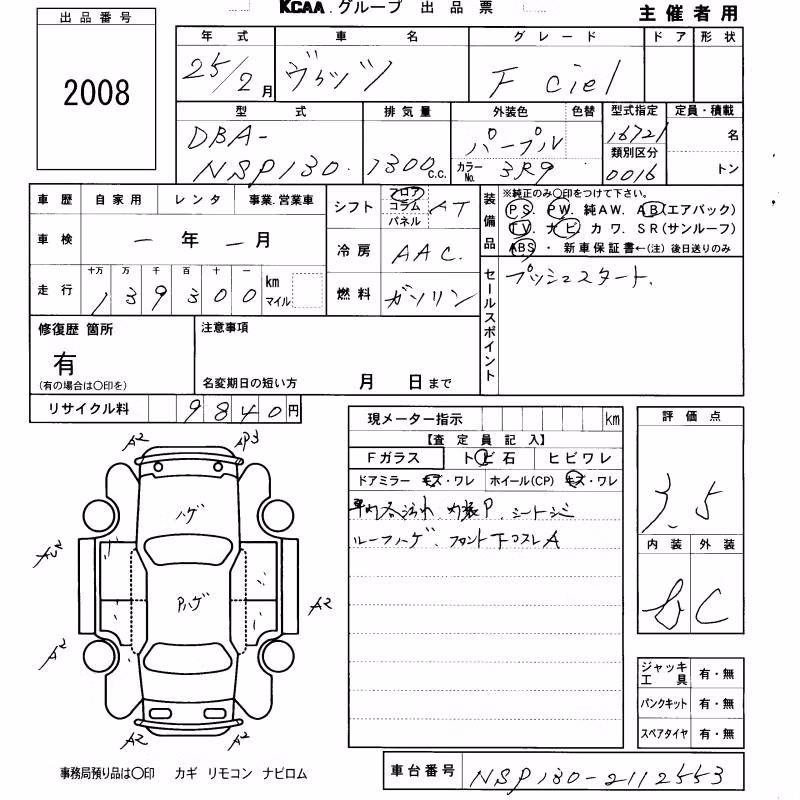 KCAA.グループ 出品票
主催者用
出品番号
2008
年式 車名 グレード ドア 形状
25/2月 ヴィッツ F ciel
型式 排気量 外装色 色替 型式指定 定員・積載
DBA-
NSP130. 1300c.c. パープル
カラーNo. 3R9
16721
類別区分
0016
名
トン
車歴 自家用 レンタ 事業.営業車
車検 一年一月
走行 十万 万 千 百 十 一
139300 km マイル
シフト フロア コラム パネル AT
冷房 AAC.
燃料 ガソリン
装備品
※純正のみ〇印をつけて下さい。
PS. PW. 純AW. AB(エアバック)
TV. ナビ カワ. SR(サンルーフ)
ABS・新車保証書←(注)後日送りのみ
セールスポイント
プッシュスタート.
修復歴 箇所
有
(有の場合は〇印を)
注意事項
名変期日の短い方 月 日まで
リサイクル料 9840円
現メーター指示 km
【査定員記入】
Fガラス トビ石 ヒビワレ
ドアミラー キズ・ワレ ホイール(CP) キズ・ワレ
内装P. シートシミ
ルーフハゲ. フロント下コスレA
評価点
3.5
内装 外装
B C
ジャッキ
工具 有・無
パンクキット 有・無
スペアタイヤ 有・無
A2
AP3
ハゲ
Pハゲ
A2
A2
A2
A2
A2
事務局預り品は〇印 カギ リモコン ナビロム
車台番号 NSP130-2112553